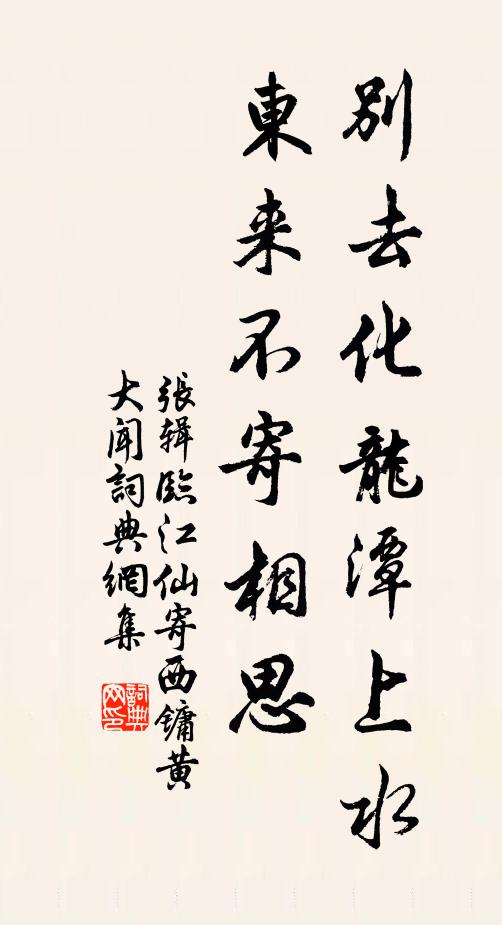 別去化龍潭上水
東来不寄相思
張辑臨江仙寄西鏞黄
大闻詞典網集
詞典
网印